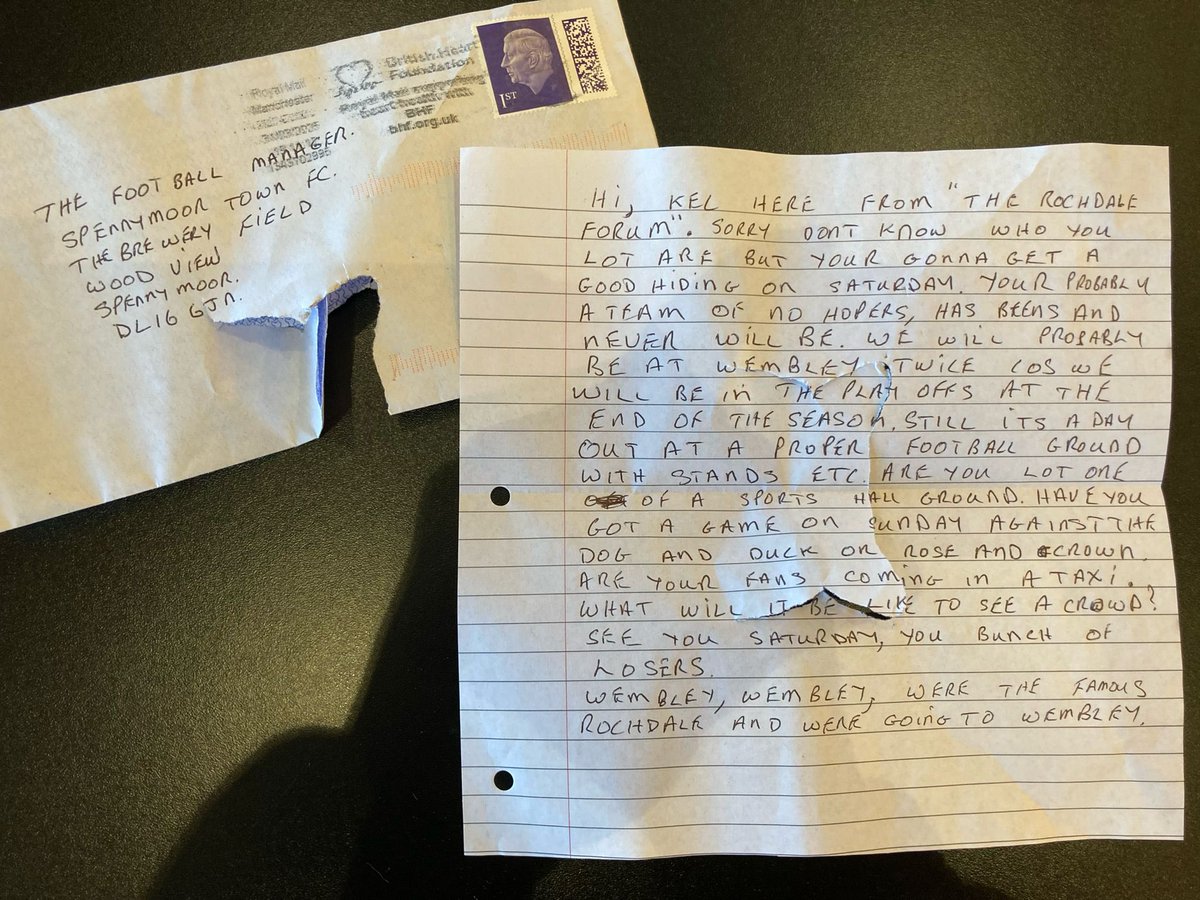 Royal Mail
Manchester
British Heart
Foundation
Royal Mail supporting
heart health with
BHF
bhf.org.uk
1ST
THE FOOTBALL MANAGER.
SPENNYMOOR TOWN FC.
THE BREWERY FIELD
WOOD VIEW
SPENNYMOOR.
DL16 6JN.
Hi, KEL HERE FROM "THE ROCHDALE
FORUM". SORRY DONT KNOW WHO YOU
LOT ARE BUT YOUR GONNA GET A
GOOD HIDING ON SATURDAY. YOUR PROBABLY
A TEAM OF NO HOPERS, HAS BEENS AND
NEVER WILL BE. WE WILL PROBABLY
BE AT WEMBLEY TWICE COS WE
WILL BE in THE PLAY OFFS AT THE
END OF THE SEASON. STILL ITS A DAY
OUT AT A PROPER FOOTBALL GROUND
WITH STANDS ETC. ARE YOU LOT ONE
OF A SPORTS HALL GROUND. HAVE YOU
GOT A GAME ON SUNDAY AGAINST THE
DOG AND DUCK OR ROSE AND CROWN.
ARE YOUR FANS COMING IN A TAXI.
WHAT WILL IT BE LIKE TO SEE A CROWD?
SEE YOU SATURDAY, YOU BUNCH OF
LOSERS.
WEMBLEY, WEMBLEY, WERE THE FAMOUS
ROCHDALE AND WERE GOING TO WEMBLEY.